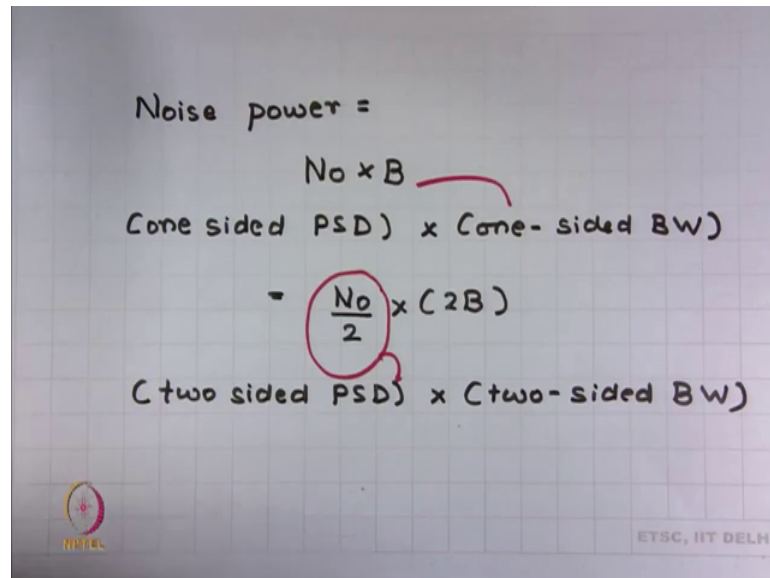 Noise power =
No × B
(one sided PSD) × (one-sided BW)
= No/2 × (2B)
(two sided PSD) × (two-sided BW)
NPTEL
ETSC, IIT DELH